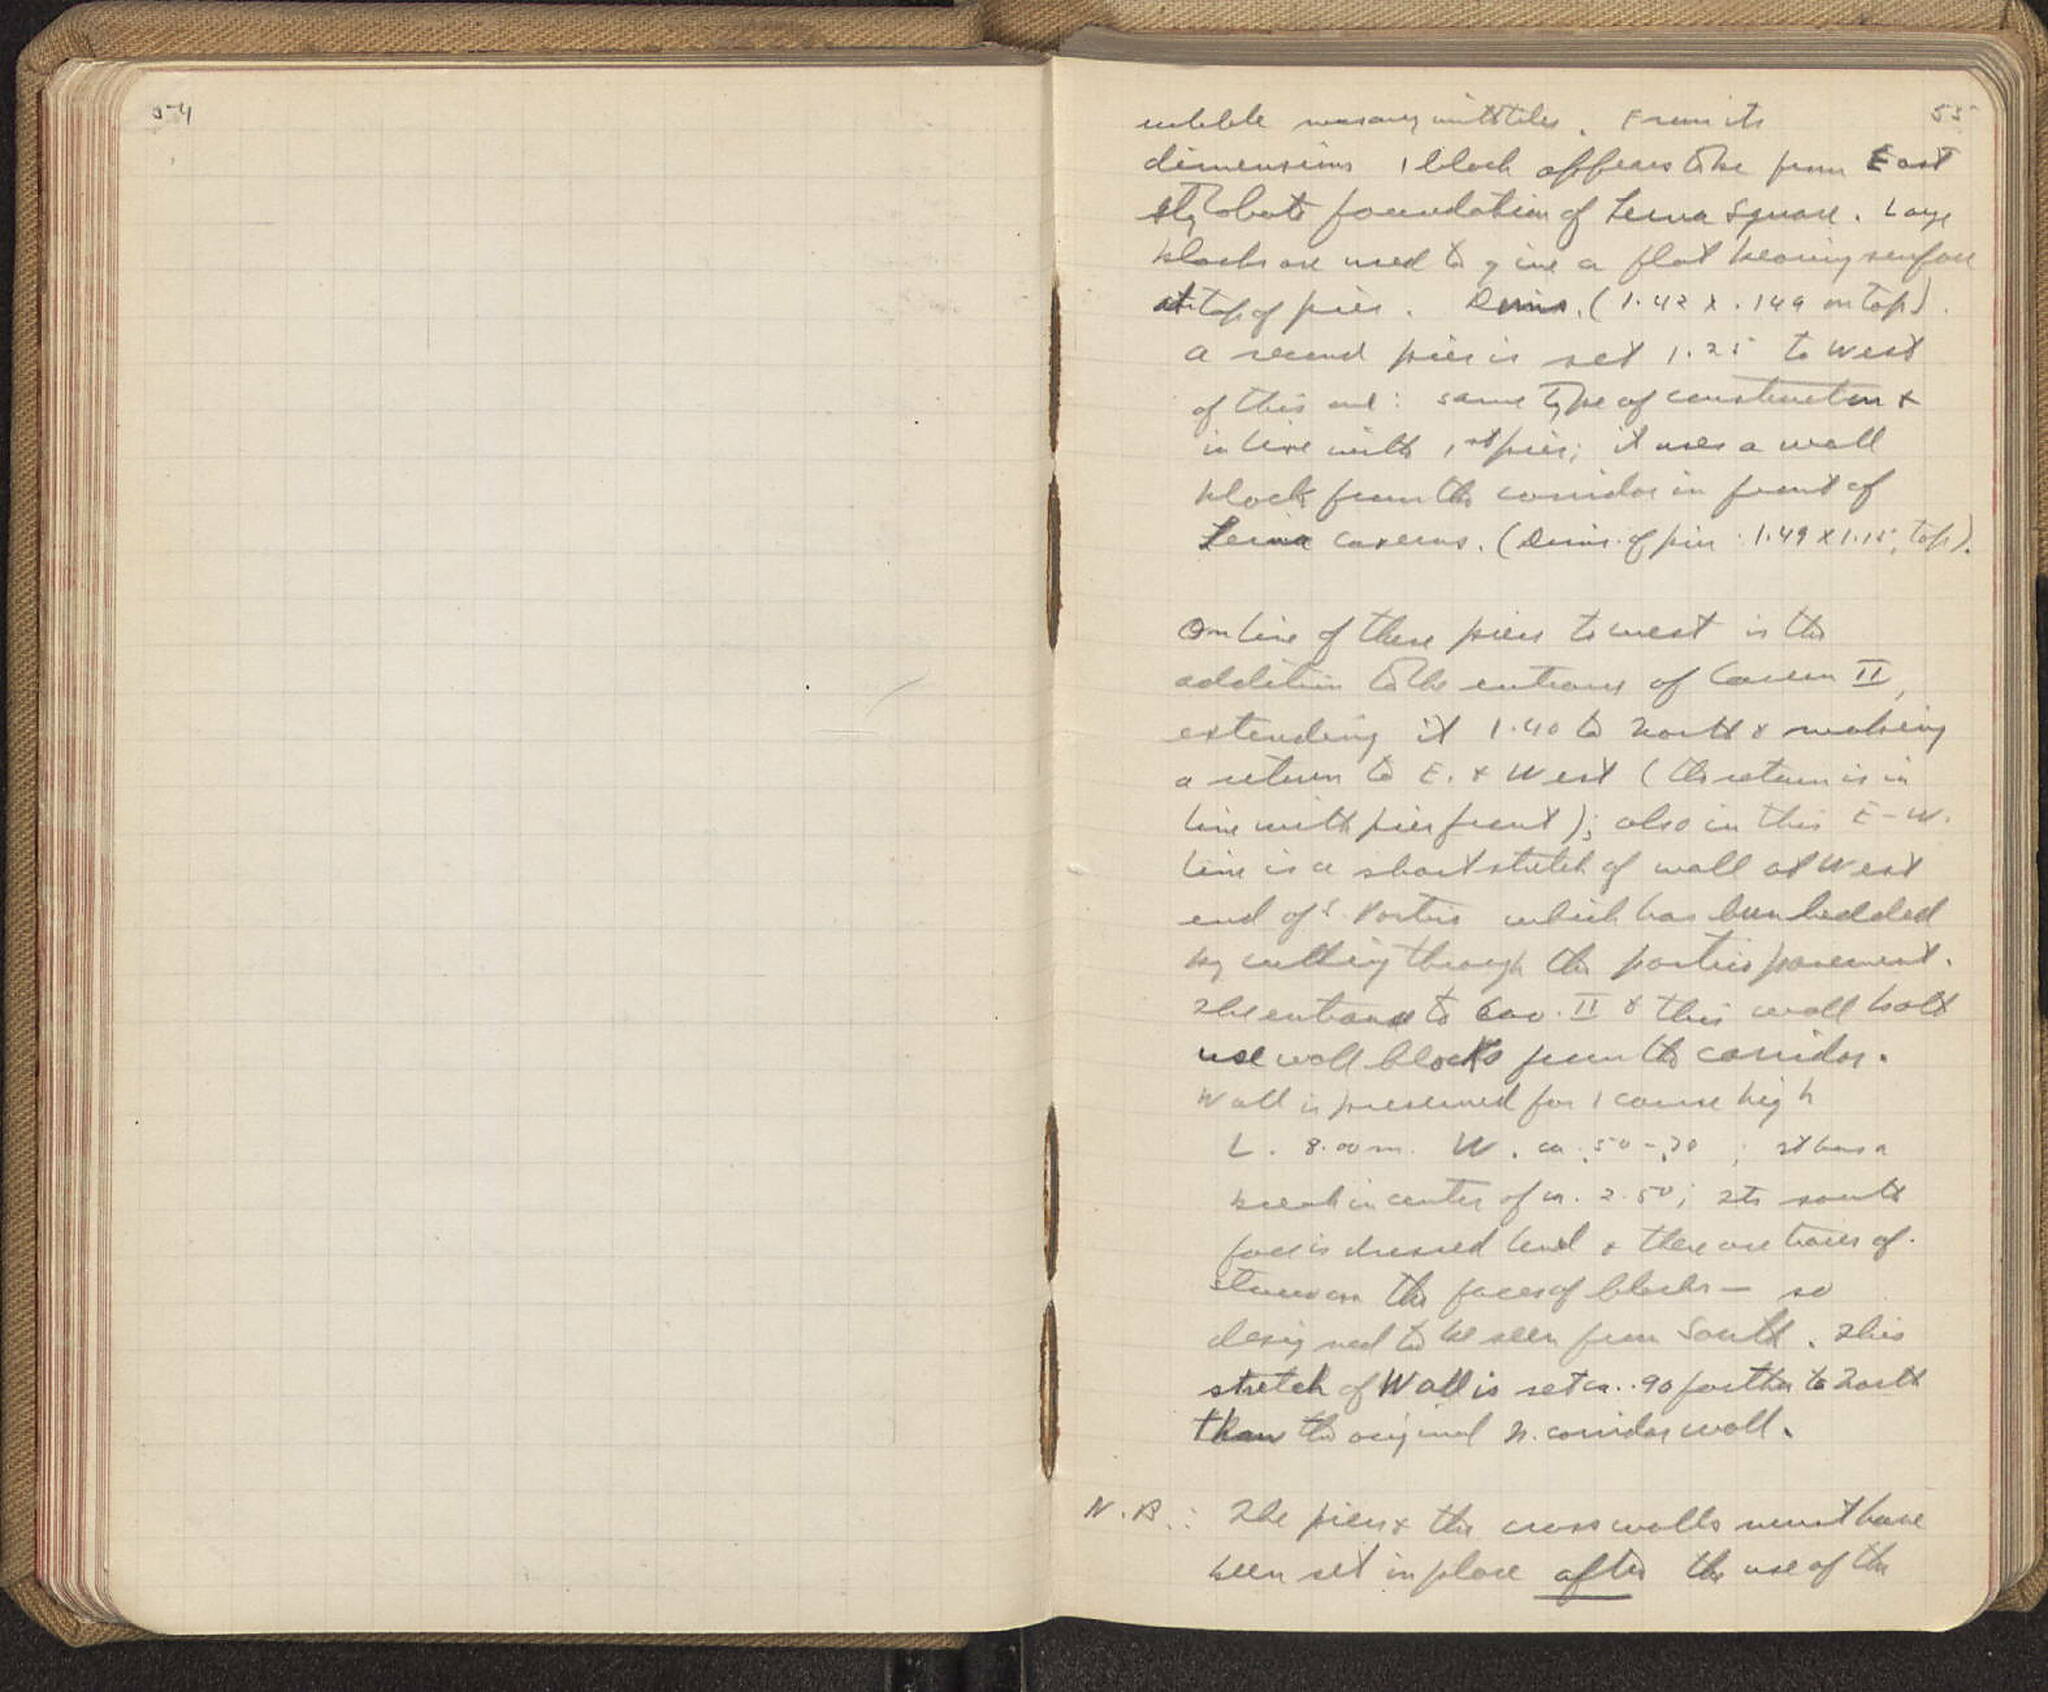 54
55
rubble masonry with tiles. From its
dimensions 1 block appears to be from East
stylobate foundation of Lerna Square. Large
blocks are used to give a flat bearing surface
at top of pier. Dims. (1.42 x .149 on top).
a second pier is set 1.25 to West
of this one: same type of construction &
in line with 1st pier; it uses a wall
block from the corridor in front of
Lerna caverns. (Dims. of pier: 1.49 x 1.15, top).
On line of these piers to west is the
addition to the entrance of Cavern II,
extending it 1.40 to North & making
a return to E. & West (the return is in
line with pier front); also in this E-W.
line is a short stretch of wall at West
end of S. Portico which has been bedded
by cutting through the portico pavement.
The entrance to Cav. II & this wall both
use wall blocks from the corridor.
Wall is preserved for 1 course high
L. 8.00 m. W. ca .50-.70; It has a
break in center of ca. 2.50; Its south
face is dressed level & there are traces of
stucco on the faces of blocks — so
designed to be seen from South. This
stretch of Wall is set ca. .90 farther to North
than the original N. corridor wall.
N.B.: The piers & the crosswalls must have
been set in place after the use of the